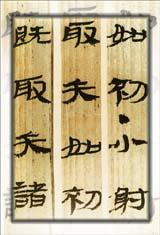 如初·小射
取矢如初
既取矢諸